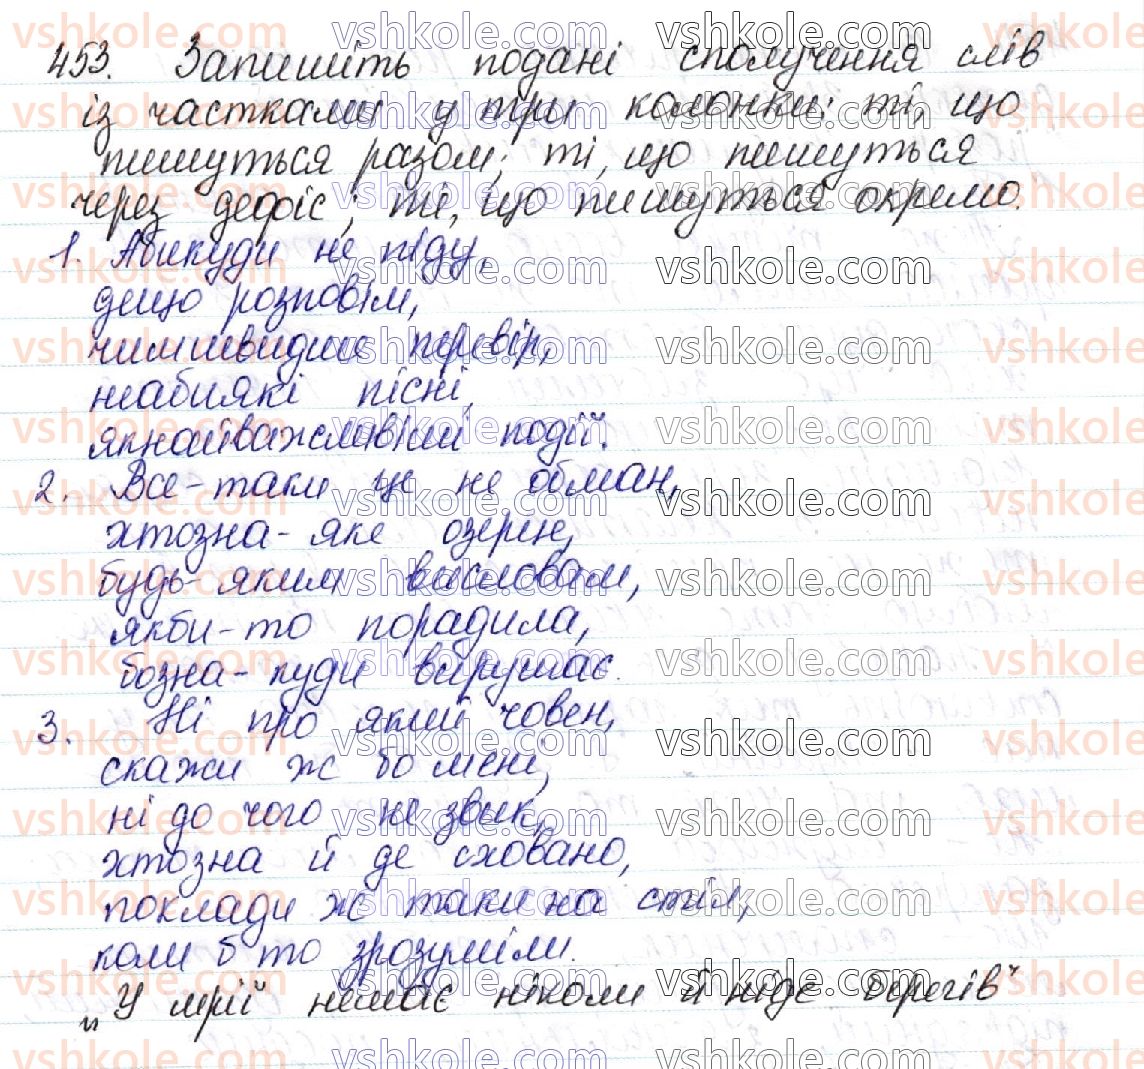 453. Запишіть подані сполучення слів
із частками у три колонки: ті, що
пишуться разом; ті, що пишуться
через дефіс; ті, що пишуться окремо.
1. Абикуди не піду,
дещо розповім,
чимшвидше перевір,
жабиякі пісні,
якнайважливіші події.
2. Все-таки це не обман,
хтозна-яке озерце,
будь-яким висловам,
якби-то порадила,
бозна-куди вирушає.
3. Ні про який човен,
скажи ж бо мені,
ні до чого не звик,
хтозна й де сховано,
поклади ж таки на стіл,
коли б то зрозуміли.
„У мрії немає ніколи й ніде берегів"